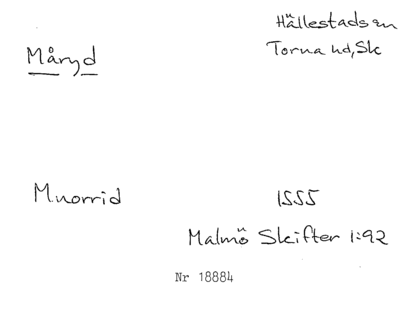 Hällestads sn
Måryd
Torna hd, Sk
Muorrid
1555
Malmö Skifter 1:92
Nr 18884